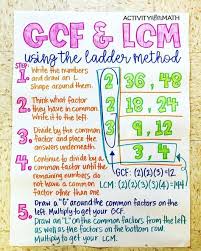 ACTIVITY AFTER MATH
GCF & LCM
using the ladder method
STEP:
1. Write the numbers and draw an L shape around them.
2. Think what factor they have in common. Write it to the left.
3. Divide by the common factor and place the answers underneath.
4. Continue to divide by a common factor until the remaining numbers do not have a common factor other than one.
5. Draw a "G" around the common factors on the left. Multiply to get your GCF.
Draw an "L" on the common factors from the left as well as the factors on the bottom row. Multiply to get your LCM.
2 36, 48
2 18, 24
3 9, 12
3, 4
GCF: (2)(2)(3)=12
LCM: (2)(2)(3)(3)(4)=144